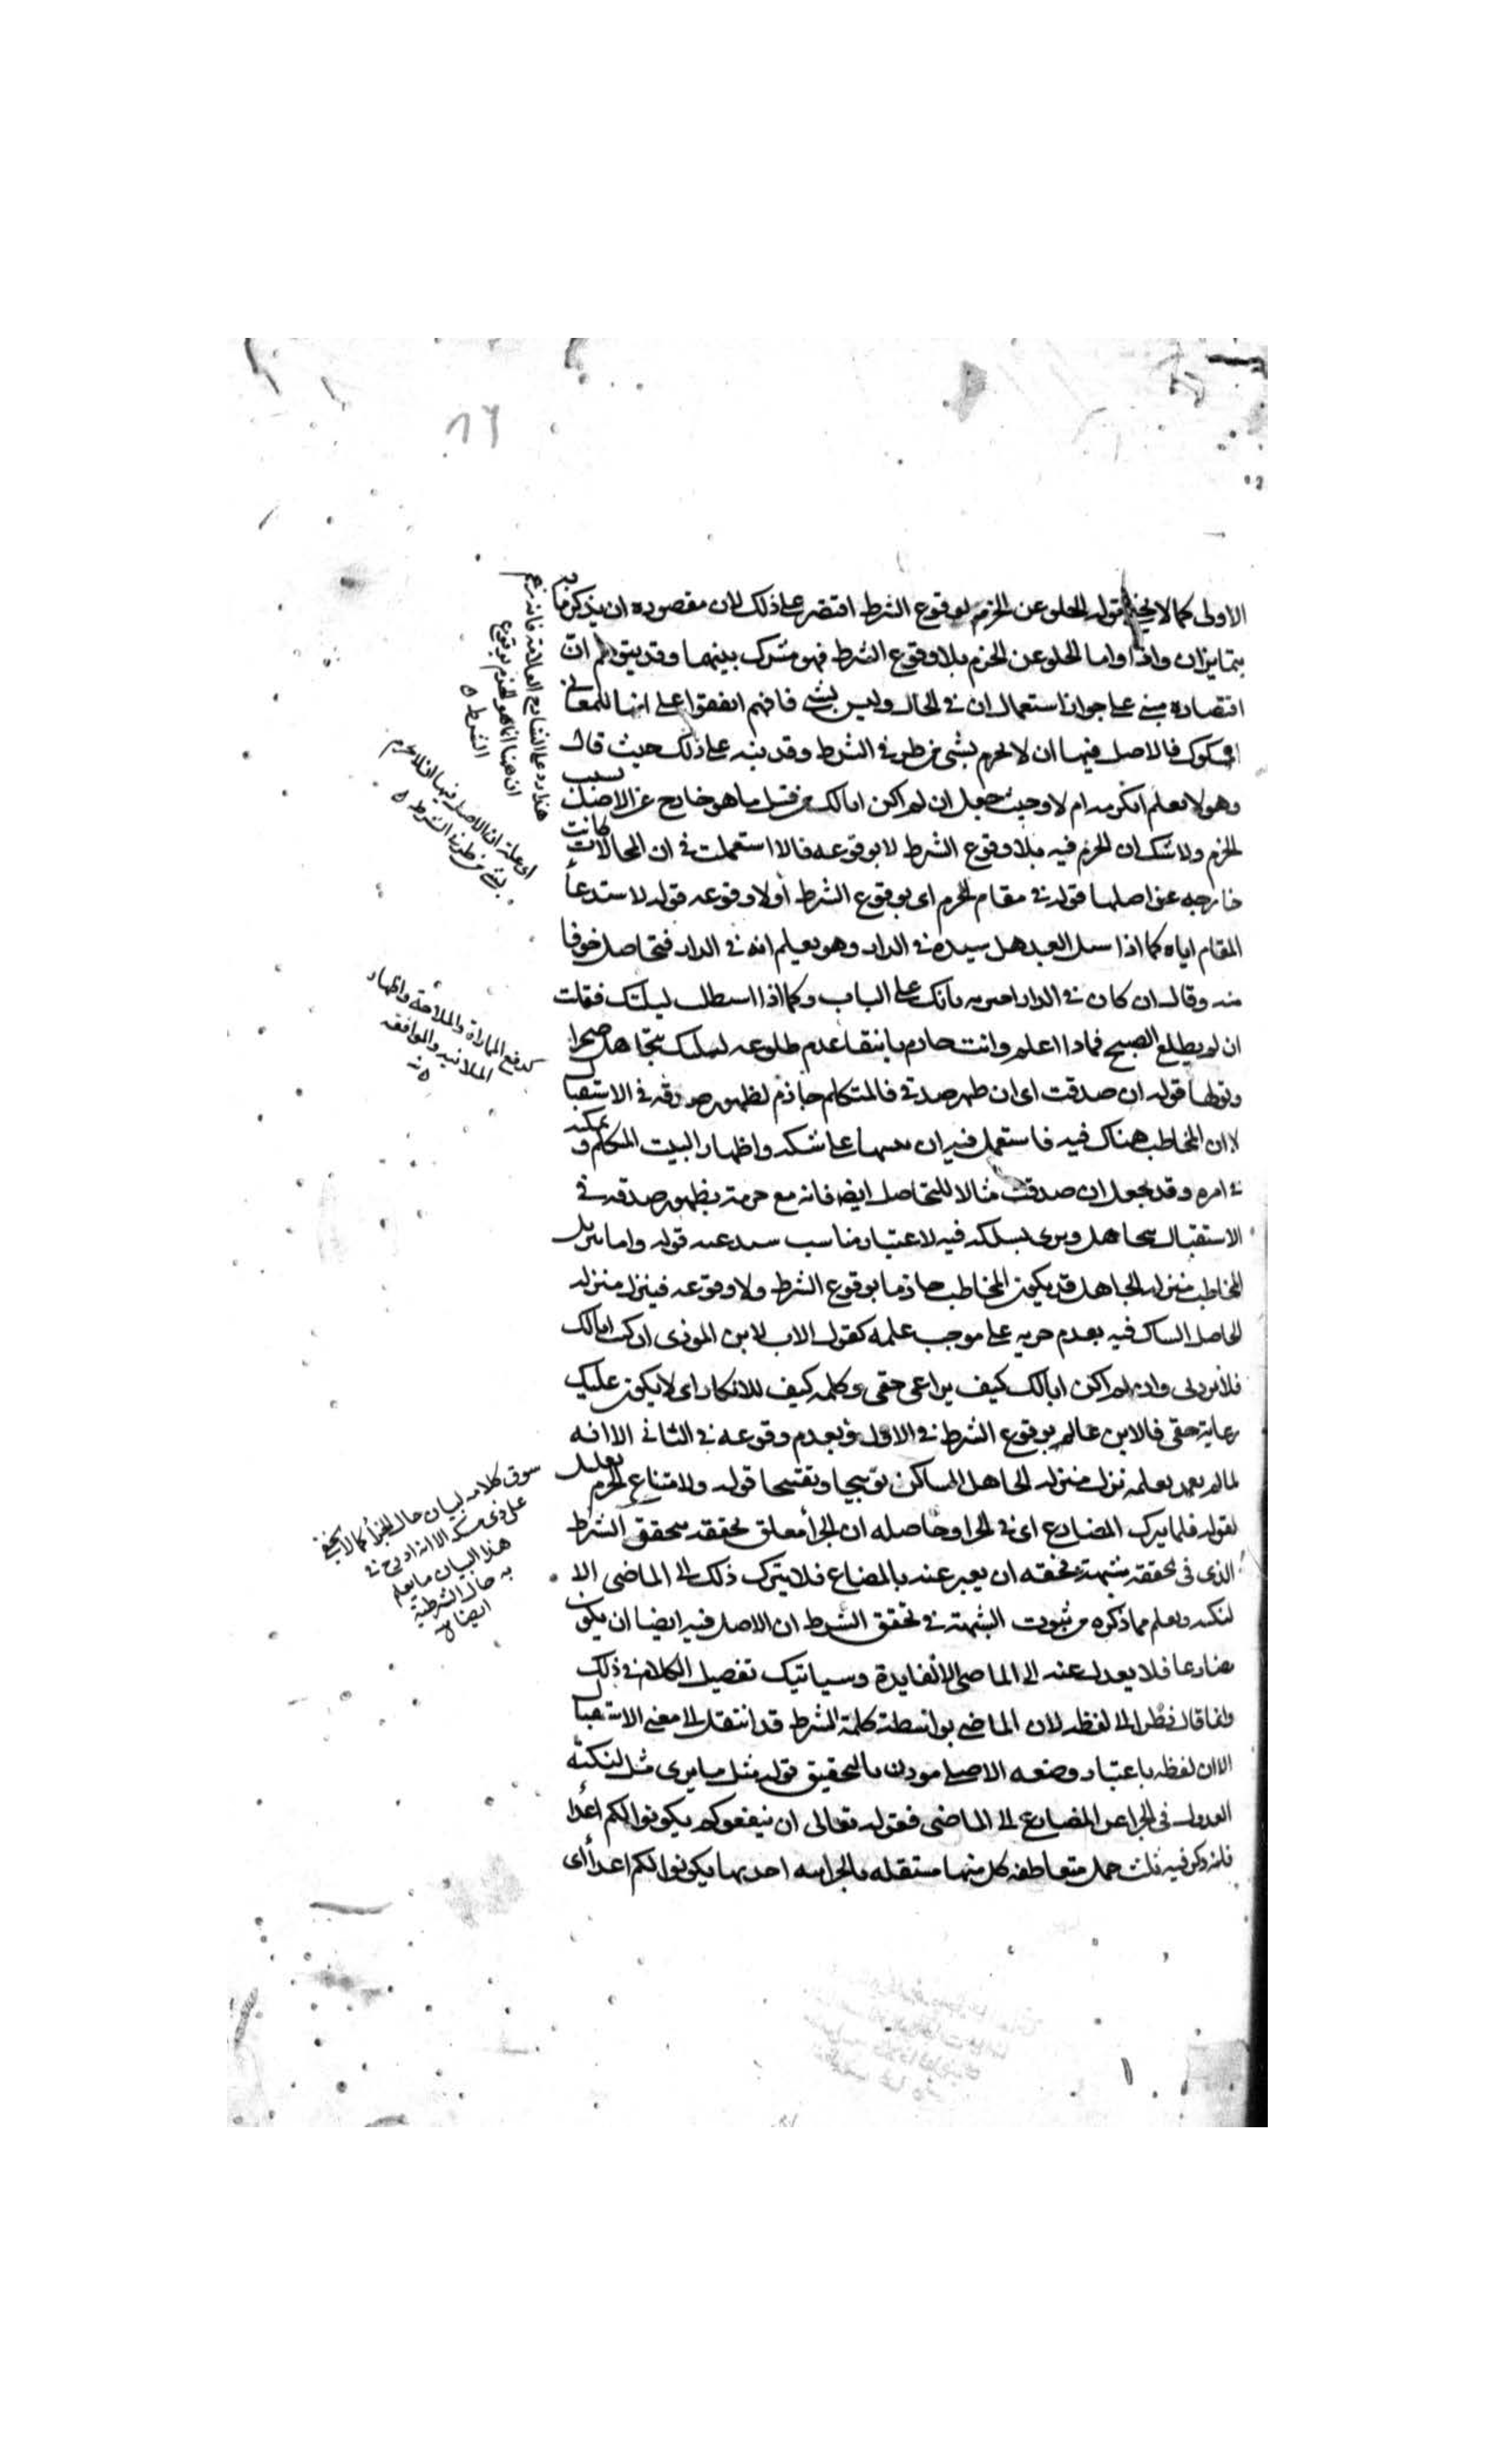 الاولى كما لا يخفى قوله الخلو عن الجزم بوقوع الشرط اقتصر على ذلك لان مقصوده ان يذكر ما به
يتمايز ان واذا واما الخلو عن الجزم بلا وقوع الشرط فهو مشترك بينهما وقد يتوهم ان
اقتصاره مبني على جواز استعمال ان في الحال وليس بشي فانهم اتفقوا على انها للمعاني
المشكوك فالاصل فيها ان لا يجزم بشي من طرفي الشرط وقد نبه على ذلك حيث قال
وهو لا يعلم اتكرمه ام لا وحيث جعل ان لم اكن ابا لك من قبيل ما هو خارج عن الاصل بسبب
الجزم ولا شك ان الجزم فيه بلا وقوع الشرط لا بوقوعه فالا استعملت في ان المحالات كانت
خارجه عن اصلها قوله في مقام الجزم اى بوقوع الشرط أو لا وقوعه قوله لاستدعاء
المقام اياه كما اذا سئل العبد هل سيده في الدار وهو يعلم انه في الدار فتجاهل خوفا
منه وقال ان كان في الدار اخبره بانك على الباب وكما اذا استطلت ليلتك فقلت
ان لم يطلع الصبح فماذا اعلم وانت جازم بانتفاء عدم طلوعه تتجاهل ضجرا
قوله ان صدقت اى ان ظهر صدقي فالمتكلم جازم لظهور صدقه في الاستقبال
لان المخاطب هناك فيه فاستعمل فيه ان على شكه واظهار
في امره وقد يجعل ان صدقت مثالا للتجاهل ايضا فانه مع جزمه بظهور صدقه في
الاستقبال فيه لاعتبار مناسب قوله واما تنزيل
المخاطب منزله الجاهل قد يكون المخاطب جازما بوقوع الشرط ولا وقوعه فينزل منزله
الجاهل الشاك فيه بعدم جريه على موجب علمه كقول الاب لابن الموذى ان كنت ابا لك
فلا توذني وان لم اكن ابا لك كيف يراعى حقى وكلمه كيف للانكار اى لا يكون عليك
رعاية حقى فالابن عالم بوقوع الشرط في الاول وبعدم وقوعه في الثانى الا انه
لما لم يعمل بعلمه نزل منزله الجاهل توبيخا وتقبيحا قوله ولامتناع الجزم تعليل
لقوله فلما يترك المضارع اى في الجزا وحاصله ان الجزأ معلق تحققه بتحقق الشرط
الذى في تحققه شبهة فحقه ان يعبر عنه بالمضارع فلا يترك ذلك الى الماضى الا
لنكته ويعلم مما ذكره من ثبوت الشبهة في تحقق الشرط ان الاصل فيه ايضا ان يكون
مضارعا فلا يعدل عنه الى الماضى الا لفايدة وسياتيك تفصيل الكلام في ذلك
وانما قال نظرا الى لفظه لان الماضى بواسطة كلمة الشرط قد انتقل الى معنى الاستقبال
الا ان لفظه باعتبار وضعه الاصلى موذن بالتحقيق قوله مثل ما يرى مثل لنكتة
العدول في الجزا عن المضارع الى الماضى فقوله تعالى ان يثقفوكم يكونوا لكم اعدأ
فانه ذكر فيه ثلث جمل متعاطفه كل منها مستقله بالجزائيه احديها يكونوا لكم اعدأ اى
هذا رد على الشارح العلامة فانه زعم
ان هنا انما هو الجزم بوقوع
الشرط ٥
اى على ان الاصل فيها ان لا يجزم
بشي من طرفي الشرط ٥
كدفع المماراة والملاحة واظهار
الملاينه والموافقه
سوق كلامه لبيان حال الجزأ كما لا يخفى
على ذى مسكه الا انه ادرج في
هذا البيان ما يعلم
به حال الشرطية
ايضا